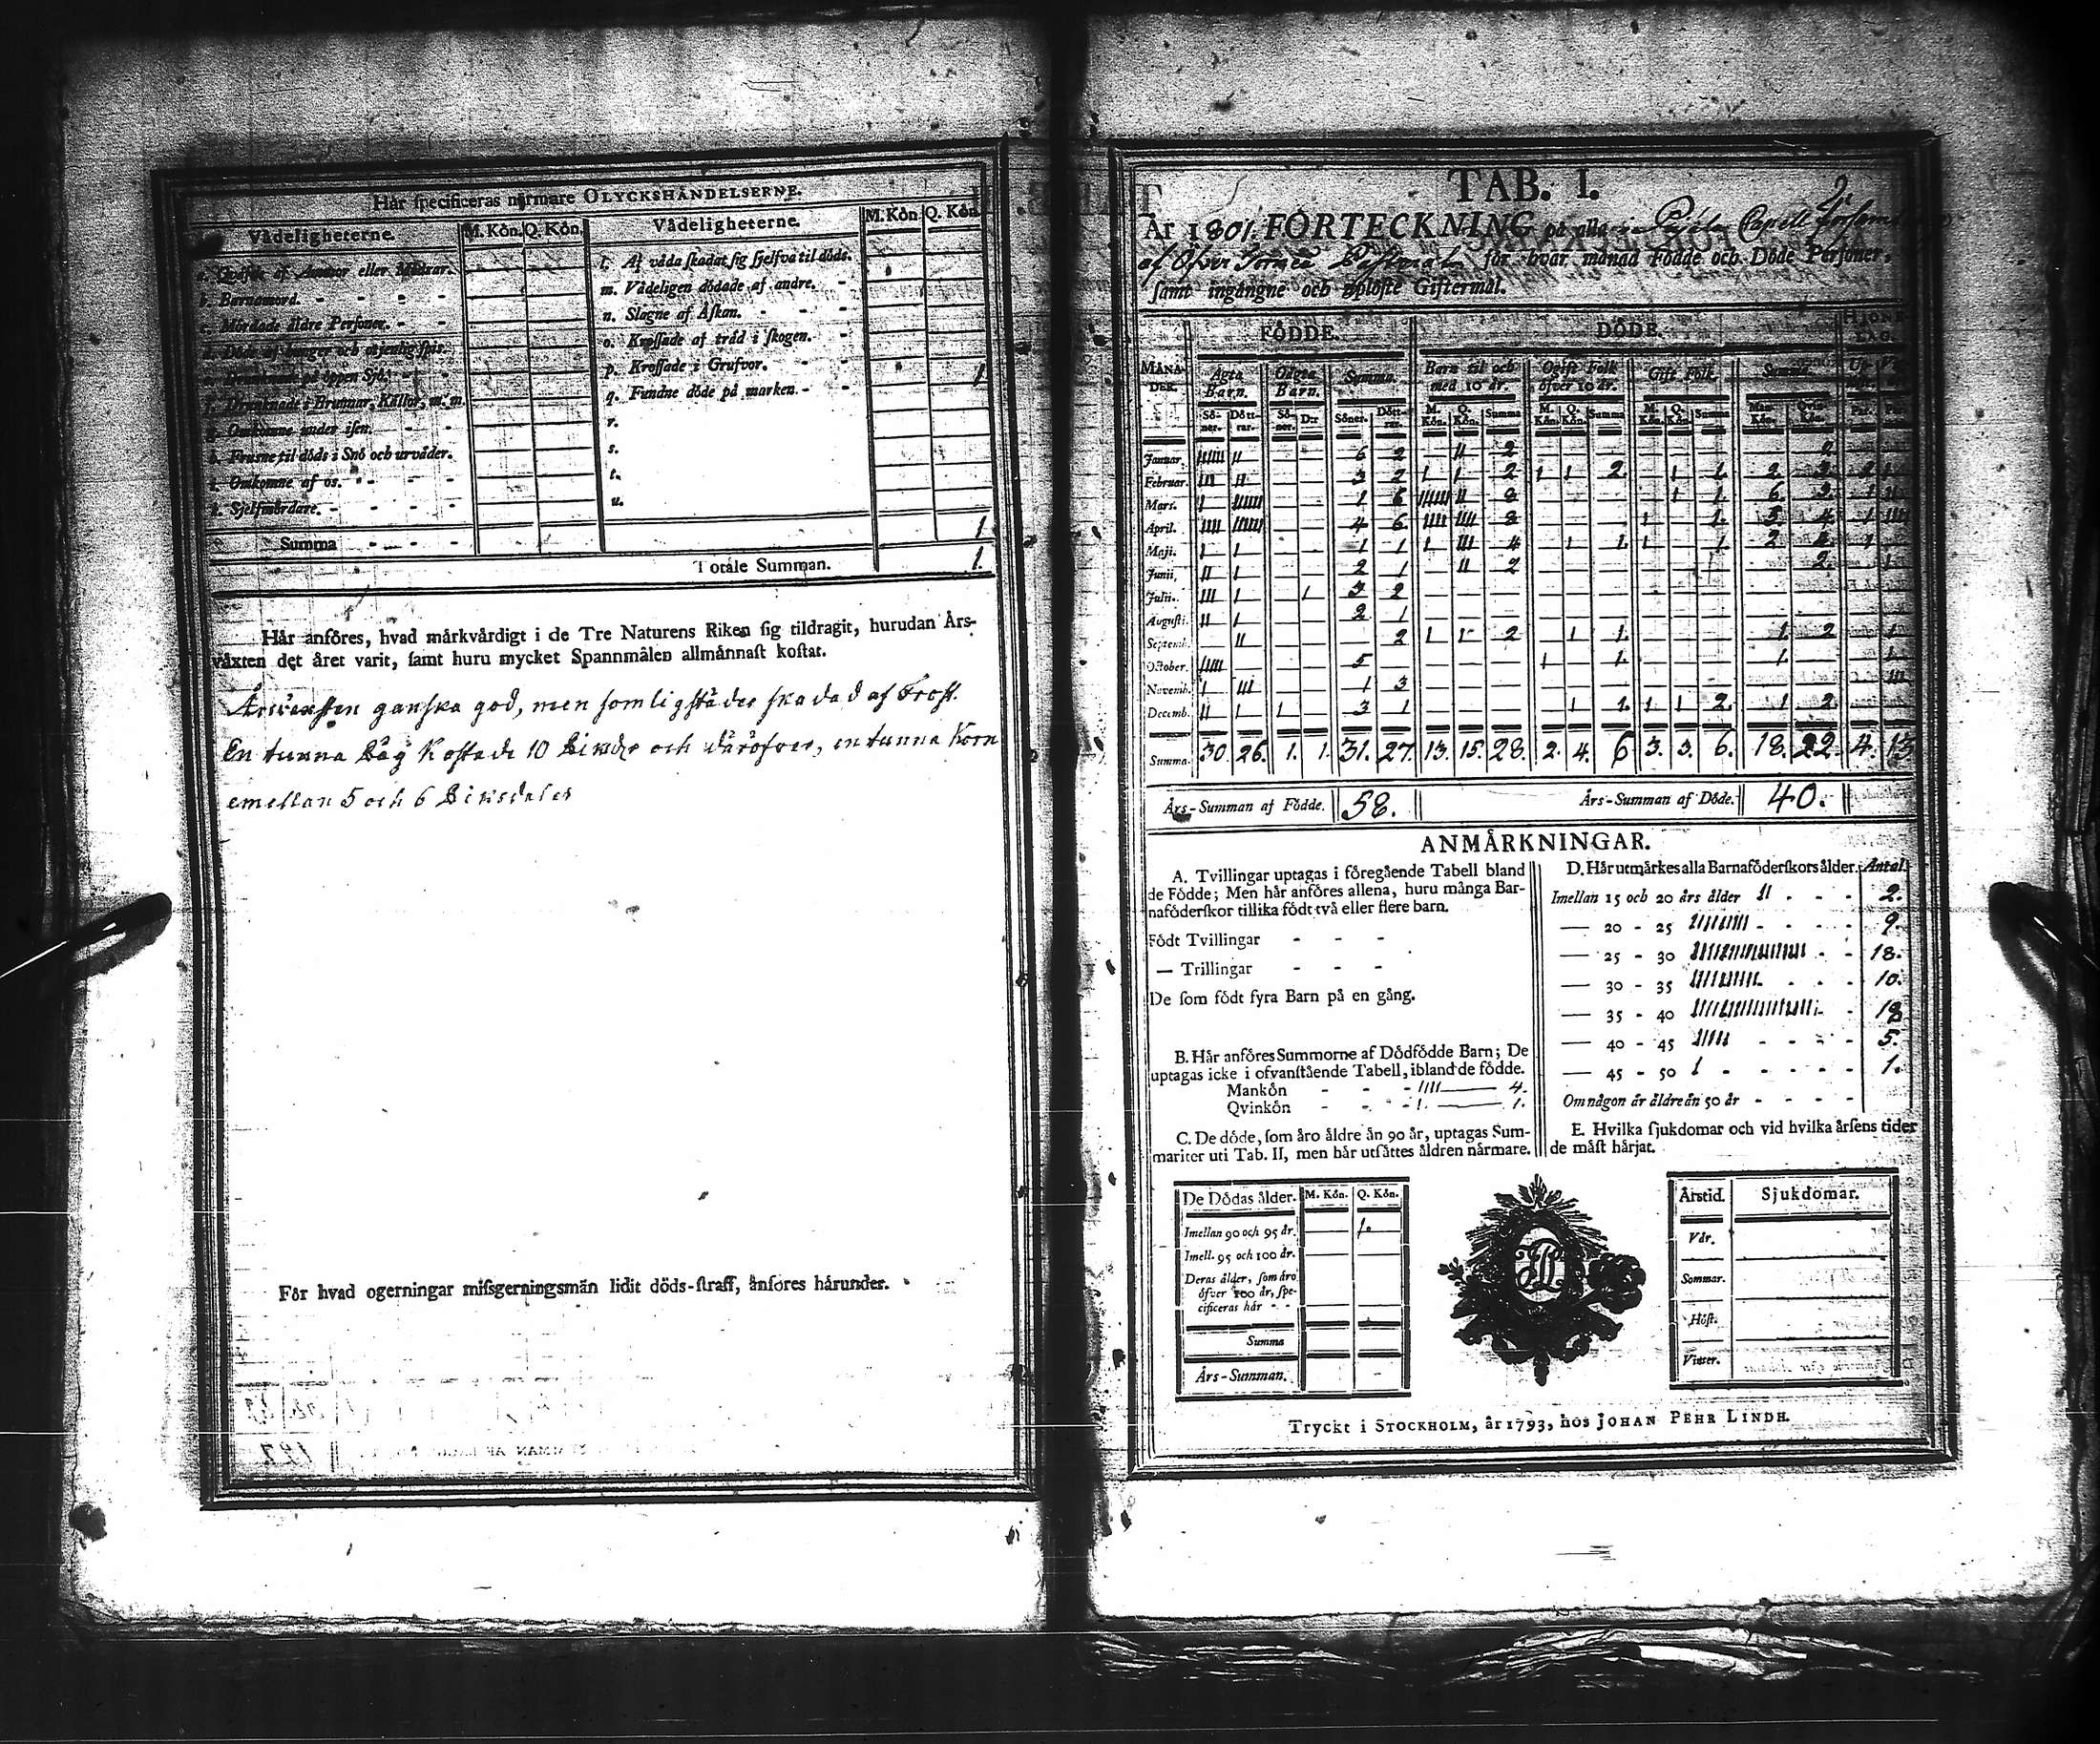 Hår specificeras nårmare OLYCKSHÅNDELSERNE.
Vådeligheterne. M. Kön. Q. Kön. Vådeligheterne. M. Kön. Q. Kön.
a. Qvåfde af Ammor eller Mödrar.
b. Barnamord. - - - -
Mördade åldre Personer. - -
d. Döde af hunger och otjenlig spis.
e. Drunknade på öppen Sjö. - -
f. Drunknade i Brunnar, Källor, m. m.
g. Omkomne under isen. - -
h. Frusne til döds i Snö och urvåder.
i. Omkomne af os. - - -
k. Sjelfmördare. - - - -
l. Af våda skadat sig sjelfva til döds.
m. Vådeligen dödade af andre. -
n. Slagne af Åskan. - - -
o. Krossade af tråd i skogen. -
p. Krossade i Grufvor. - - 1
q. Fundne döde på marken. -
r.
s.
t.
u.
Summa - - - - 1
Totale Summan. 1.
Hår anföres, hvad mårkvårdigt i de Tre Naturens Riken sig tildragit, hurudan Års-
våxten det året varit, samt huru mycket Spannmålen allmånnast kostat.
Årsväxten ganska god, men somligstädes skadad af Frost.
En tunna Råg kostade 10 Riksdr och däröfver, en tunna Korn
emellan 5 och 6 Riksdaler
För hvad ogerningar missgerningsmän lidit döds-straff, anföres hårunder.
TAB. I.
2.
År 1801. FÖRTECKNING på alla Pajala Capell Församl
af Öfver Torneå Pastorat för hvar månad Födde och Döde Personer,
samt ingångne och uplöste Giftermål.
FÖDDE. DÖDE. HJONE-LAG.
MÅNADER. Ågta Barn. Oågta Barn. Summa. Barn til och med 10 år. Ogift Folk öfver 10 år. Gift Folk. Summa.
Söner. Döttrar. Söner. D:r Söner. Döttrar. M. Kön. Q. Kön. Summa M. Kön. Q. Kön. Summa M. Kön. Q. Kön. Summa Man-Kön. Qvin-Kön. Par. Par.
Januar. 6 2 2 2
Februar. 3 2 1 1 2 1 1 2. 1 1. 2 3 2 1
Mars. 1 6 8 1 1. 6. 3 1 11
April. 4 6 8 1 1. 5 4 1
Maji. 1 1 1 1 1 4 1 1. 1 1. 2 4 1
Junii. 2 1 2 2. 1
Julii. 1 3 2
Augusti. 2 1
Septemb. 2 1 1 2 1 1. 1. 2 1
October. 5 1 1. 1. 1
Novemb. 1 3
Decemb. 1 1 3 1 1 1. 1 1 2. 1 2
Summa. 30. 26. 1. 1. 31. 27. 13. 15. 28. 2. 4. 6 3. 3. 6. 18. 22. 4. 13
Års-Summan af Födde. 58. Års-Summan af Döde. 40.
ANMÅRKNINGAR.
A. Tvillingar uptagas i föregående Tabell bland
de Födde; Men hår anföres allena, huru många Bar-
naföderskor tillika födt två eller flere barn.
Födt Tvillingar - - -
— Trillingar - - -
De som födt fyra Barn på en gång.
B. Hår anföres Summorne af Dödfödde Barn; De
uptagas icke i ofvanstående Tabell, ibland de födde.
Mankön - - - 1111 — 4.
Qvinkön - - - 1. — 1.
C. De döde, som åro åldre ån 90 år, uptagas Sum-
mariter uti Tab. II, men hår utsåttes åldren nårmare.
D. Hår utmårkes alla Barnaföderskors ålder. Antal.
Imellan 15 och 20 års ålder 11 - - - 2.
— 20 - 25 - - - - 9.
— 25 - 30 - - 18.
— 30 - 35 - - - 10.
— 35 - 40 - 18
— 40 - 45 11111 - - - - 5.
— 45 - 50 1 - - - - - 1.
Om någon år åldre ån 50 år - - - -
E. Hvilka sjukdomar och vid hvilka årsens tider
de måst hårjat.
De Dödas ålder. M. Kön. Q. Kön.
Imellan 90 och 95 år. 1.
Imell. 95 och 100 år.
Deras ålder, som åro
öfver 100 år, spe-
cificeras hår - -
Summa
Års-Summan.
Årstid. Sjukdomar.
Vår.
Sommar.
Höst.
Vinter.
Tryckt i STOCKHOLM, år 1793, hos JOHAN PEHR LINDH.